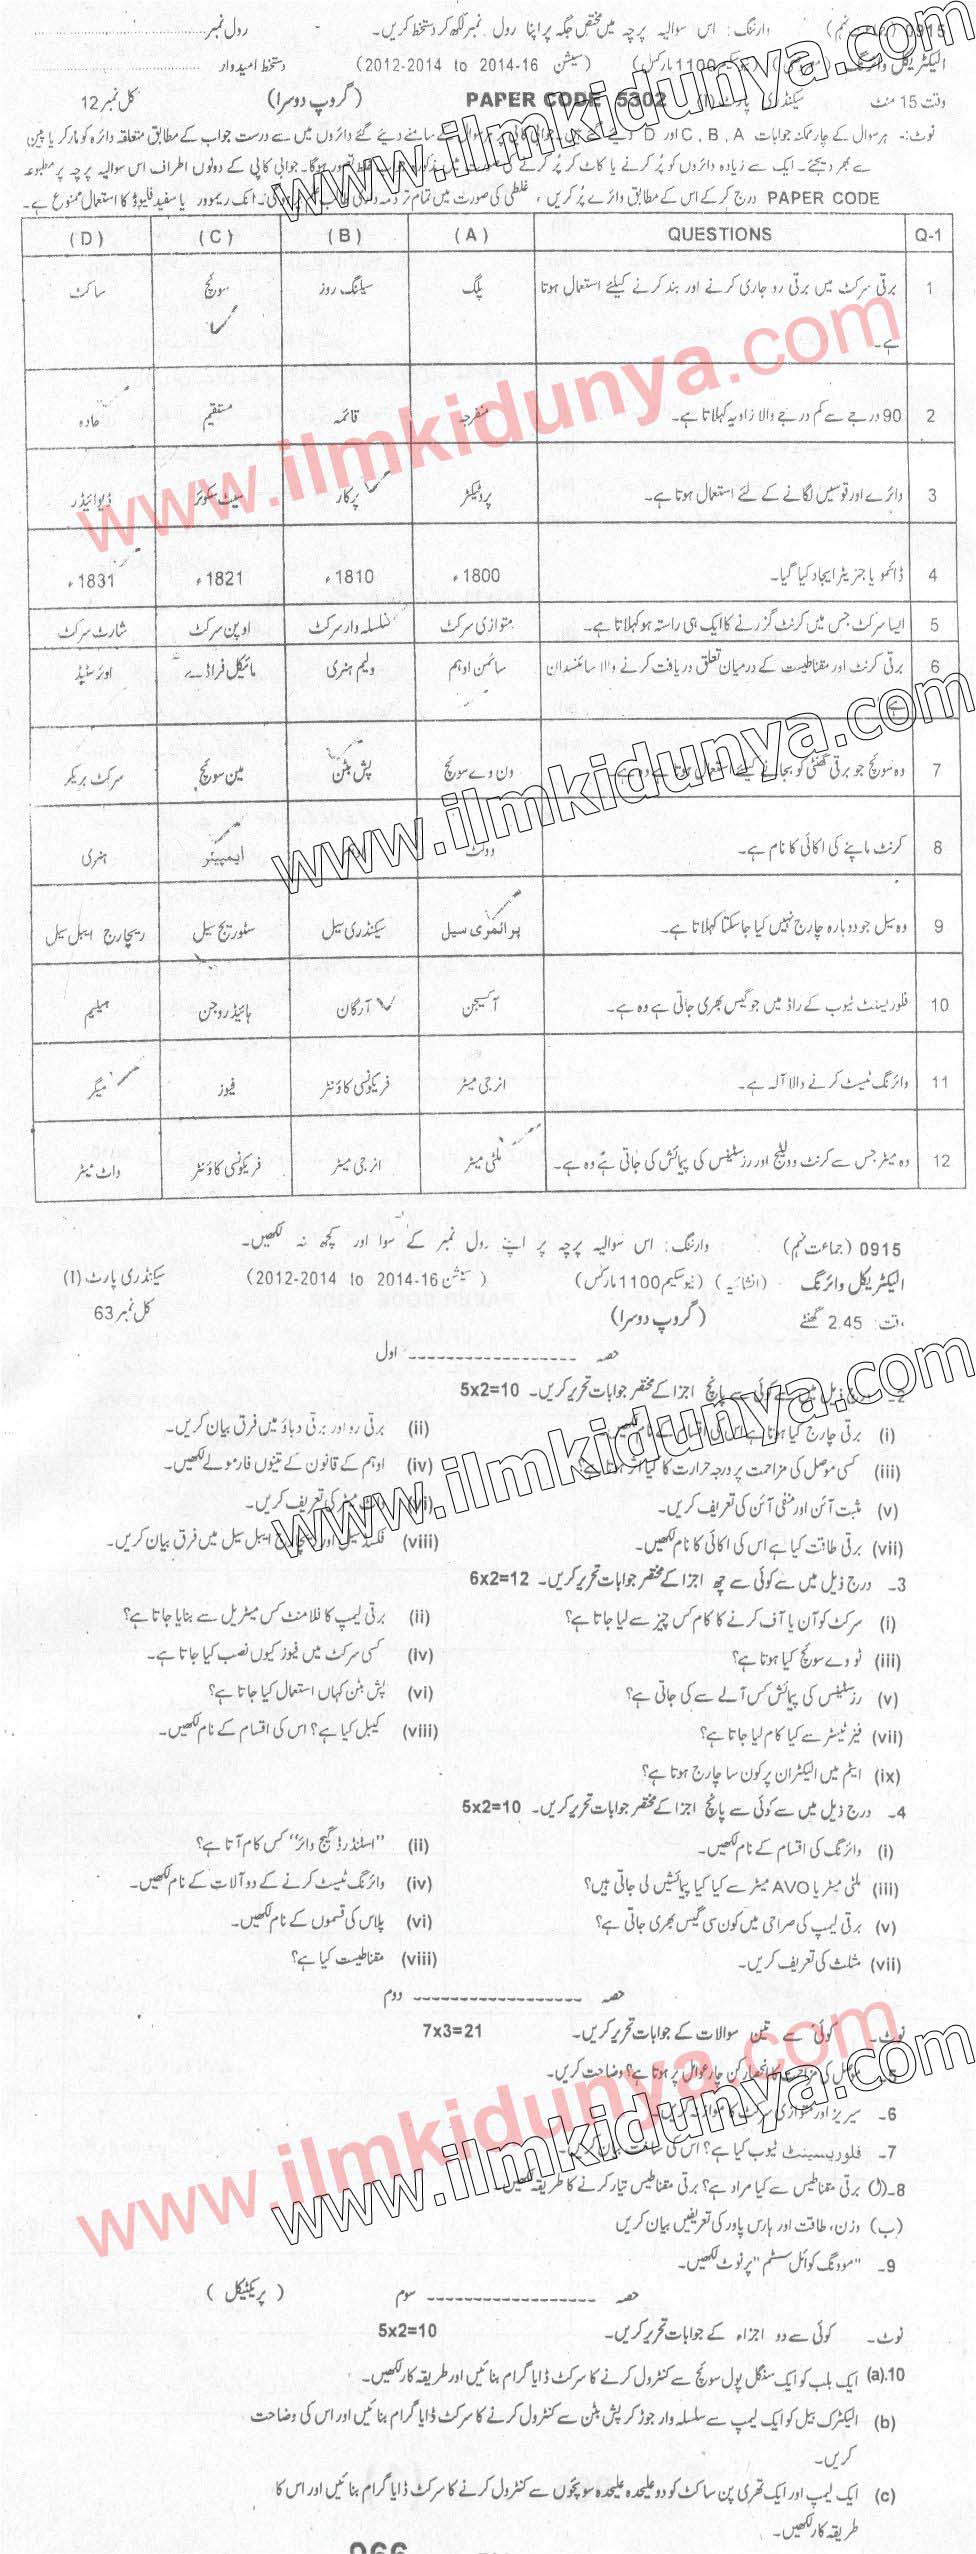 0915 (جماعت نہم) وارننگ: اس سوالیہ پرچہ میں مختص جگہ پر اپنا رول نمبر لکھ کر دستخط کریں۔ رول نمبر
الیکٹریکل وائرنگ (نیو سکیم 1100 مارکس) (سیشن 2012-2014 to 2014-16) دستخط امیدوار
وقت 15 منٹ سیکنڈری پارٹ (I) PAPER CODE 5302 (گروپ دوسرا) کل نمبر 12
نوٹ:- ہر سوال کے چار ممکنہ جوابات A ,B ,C اور D دیئے گئے ہیں۔ جوابی کاپی پر ہر سوال کے سامنے دیئے گئے دائروں میں سے درست جواب کے مطابق متعلقہ دائرہ کو مارکر یا پین
سے بھر دیجئے۔ ایک سے زیادہ دائروں کو پُر کرنے یا کاٹ کر پُر کرنے کی صورت میں مذکورہ جواب غلط تصور ہوگا۔ جوابی کاپی کے دونوں اطراف اس سوالیہ پرچہ پر مطبوعہ
PAPER CODE درج کر کے اس کے مطابق دائرے پُر کریں، غلطی کی صورت میں تمام تر ذمہ داری طالب علم پر ہوگی۔ انک ریموور یا سفید فلیوڈ کا استعمال ممنوع ہے۔
Q-1 QUESTIONS (A) (B) (C) (D)
1 برقی سرکٹ میں برقی رو جاری کرنے اور بند کرنے کیلئے استعمال ہوتا پلگ سیلنگ روز سوئچ ساکٹ
ہے۔
2 90 درجے سے کم درجے والا زاویہ کہلاتا ہے۔ منفرجہ قائمہ مستقیم حادہ
3 دائرے اور قوسیں لگانے کے لئے استعمال ہوتا ہے۔ پروٹیکٹر پرکار سیٹ سکوئر ڈیوائیڈر
4 ڈائنمو یا جنریٹر ایجاد کیا گیا۔ 1800ء 1810ء 1821ء 1831ء
5 ایسا سرکٹ جس میں کرنٹ گزرنے کا ایک ہی راستہ ہو کہلاتا ہے۔ متوازی سرکٹ سلسلہ وار سرکٹ اوپن سرکٹ شارٹ سرکٹ
6 برقی کرنٹ اور مقناطیسیت کے درمیان تعلق دریافت کرنے والا سائنسدان سائمن اوہم ولیم ہنری مائیکل فراڈے اوئرسٹیڈ
ہے۔
7 وہ سوئچ جو برقی گھنٹی کو بجانے کیلئے استعمال ہوتا ہے وہ ہے۔ ون وے سوئچ پش بٹن مین سوئچ سرکٹ بریکر
8 کرنٹ ماپنے کی اکائی کا نام ہے۔ وولٹ ایمپیئر ہنری
9 وہ سیل جو دوبارہ چارج نہیں کیا جاسکتا کہلاتا ہے۔ پرائمری سیل سیکنڈری سیل سٹوریج سیل ریچارج ایبل سیل
10 فلوریسنٹ ٹیوب کے راڈ میں جو گیس بھری جاتی ہے وہ ہے۔ آکسیجن آرگان ہائیڈروجن ہیلیم
11 وائرنگ ٹیسٹ کرنے والا آلہ ہے۔ انرجی میٹر فریکونسی کاؤنٹر فیوز میگر
12 وہ میٹر جس سے کرنٹ وولٹیج اور رزسٹینس کی پیمائش کی جاتی ہے وہ ہے۔ ملٹی میٹر انرجی میٹر فریکونسی کاؤنٹر واٹ میٹر
0915 (جماعت نہم) وارننگ: اس سوالیہ پرچہ پر اپنے رول نمبر کے سوا اور کچھ نہ لکھیں۔
الیکٹریکل وائرنگ (انشائیہ) (نیو سکیم 1100 مارکس) (سیشن 2012-2014 to 2014-16) سیکنڈری پارٹ (I)
وقت: 2.45 گھنٹے (گروپ دوسرا) کل نمبر 63
حصہ ---------------- اول
2۔ درج ذیل میں سے کوئی سے پانچ اجزا کے مختصر جوابات تحریر کریں۔ 5x2=10
(i) برقی چارج کیا ہوتا ہے اس کی اقسام کے نام لکھیں۔ (ii) برقی رو اور برقی دباؤ میں فرق بیان کریں۔
(iii) کسی موصل کی مزاحمت پر درجہ حرارت کا کیا اثر ہوتا ہے؟ (iv) اوہم کے قانون کے تینوں فارمولے لکھیں۔
(v) مثبت آئن اور منفی آئن کی تعریف کریں۔ (vi) میٹر کی تعریف کریں۔
(vii) برقی طاقت کیا ہے اس کی اکائی کا نام لکھیں۔ (viii) اور ریچارج ایبل سیل میں فرق بیان کریں۔
3۔ درج ذیل میں سے کوئی سے چھ اجزا کے مختصر جوابات تحریر کریں۔ 6x2=12
(i) سرکٹ کو آن یا آف کرنے کا کام کس چیز سے لیا جاتا ہے؟ (ii) برقی لیمپ کا فلامنٹ کس میٹریل سے بنایا جاتا ہے؟
(iii) ٹو وے سوئچ کیا ہوتا ہے؟ (iv) کسی سرکٹ میں فیوز کیوں نصب کیا جاتا ہے۔
(v) رزسٹینس کی پیمائش کس آلے سے کی جاتی ہے؟ (vi) پش بٹن کہاں استعمال کیا جاتا ہے؟
(vii) فیز ٹیسٹر سے کیا کام لیا جاتا ہے؟ (viii) کیبل کیا ہے؟ اس کی اقسام کے نام لکھیں۔
(ix) ایٹم میں الیکٹران پر کون سا چارج ہوتا ہے؟
4۔ درج ذیل میں سے کوئی سے پانچ اجزا کے مختصر جوابات تحریر کریں۔ 5x2=10
(i) وائرنگ کی اقسام کے نام لکھیں۔ (ii) "اسٹنڈرڈ گیج وائر" کس کام آتا ہے؟
(iii) ملٹی میٹر یا AVO میٹر سے کیا کیا پیمائشیں لی جاتی ہیں؟ (iv) وائرنگ ٹیسٹ کرنے کے دو آلات کے نام لکھیں۔
(v) برقی لیمپ کی صراحی میں کون سی گیس بھری جاتی ہے؟ (vi) پلاس کی قسموں کے نام لکھیں۔
(vii) مثلث کی تعریف کریں۔ (viii) مقناطیسیت کیا ہے؟
حصہ ---------------- دوم
نوٹ۔ کوئی سے تین سوالات کے جوابات تحریر کریں۔ 7x3=21
5۔ موصل کی مزاحمت کا انحصار کن چار عوامل پر ہوتا ہے؟ وضاحت کریں۔
6۔ سیریز اور متوازی سرکٹ کا موازنہ کریں۔
7۔ فلوریسینٹ ٹیوب کیا ہے؟ اس کی ساخت بیان کریں۔
8۔(ا) برقی مقناطیس سے کیا مراد ہے؟ برقی مقناطیس تیار کرنے کا طریقہ لکھیں۔
(ب) وزن، طاقت اور ہارس پاور کی تعریفیں بیان کریں
9۔ "موونگ کوائل سسٹم" پر نوٹ لکھیں۔
حصہ ---------------- سوم (پریکٹیکل)
نوٹ۔ کوئی سے دو اجزاء کے جوابات تحریر کریں۔ 5x2=10
10.(a) ایک بلب کو ایک سنگل پول سوئچ سے کنٹرول کرنے کا سرکٹ ڈایا گرام بنائیں اور طریقہ کار لکھیں۔
(b) الیکٹرک بیل کو ایک لیمپ سے سلسلہ وار جوڑ کر پش بٹن سے کنٹرول کرنے کا سرکٹ ڈایا گرام بنائیں اور اس کی وضاحت
کریں۔
(c) ایک لیمپ اور ایک تھری پن ساکٹ کو دو علیحدہ علیحدہ سوئچوں سے کنٹرول کرنے کا سرکٹ ڈایا گرام بنائیں اور اس کا
طریقہ کار لکھیں۔
www.ilmkidunya.com
www.ilmkidunya.com
www.ilmkidunya.com
www.ilmkidunya.com
www.ilmkidunya.com
www.ilmkidunya.com